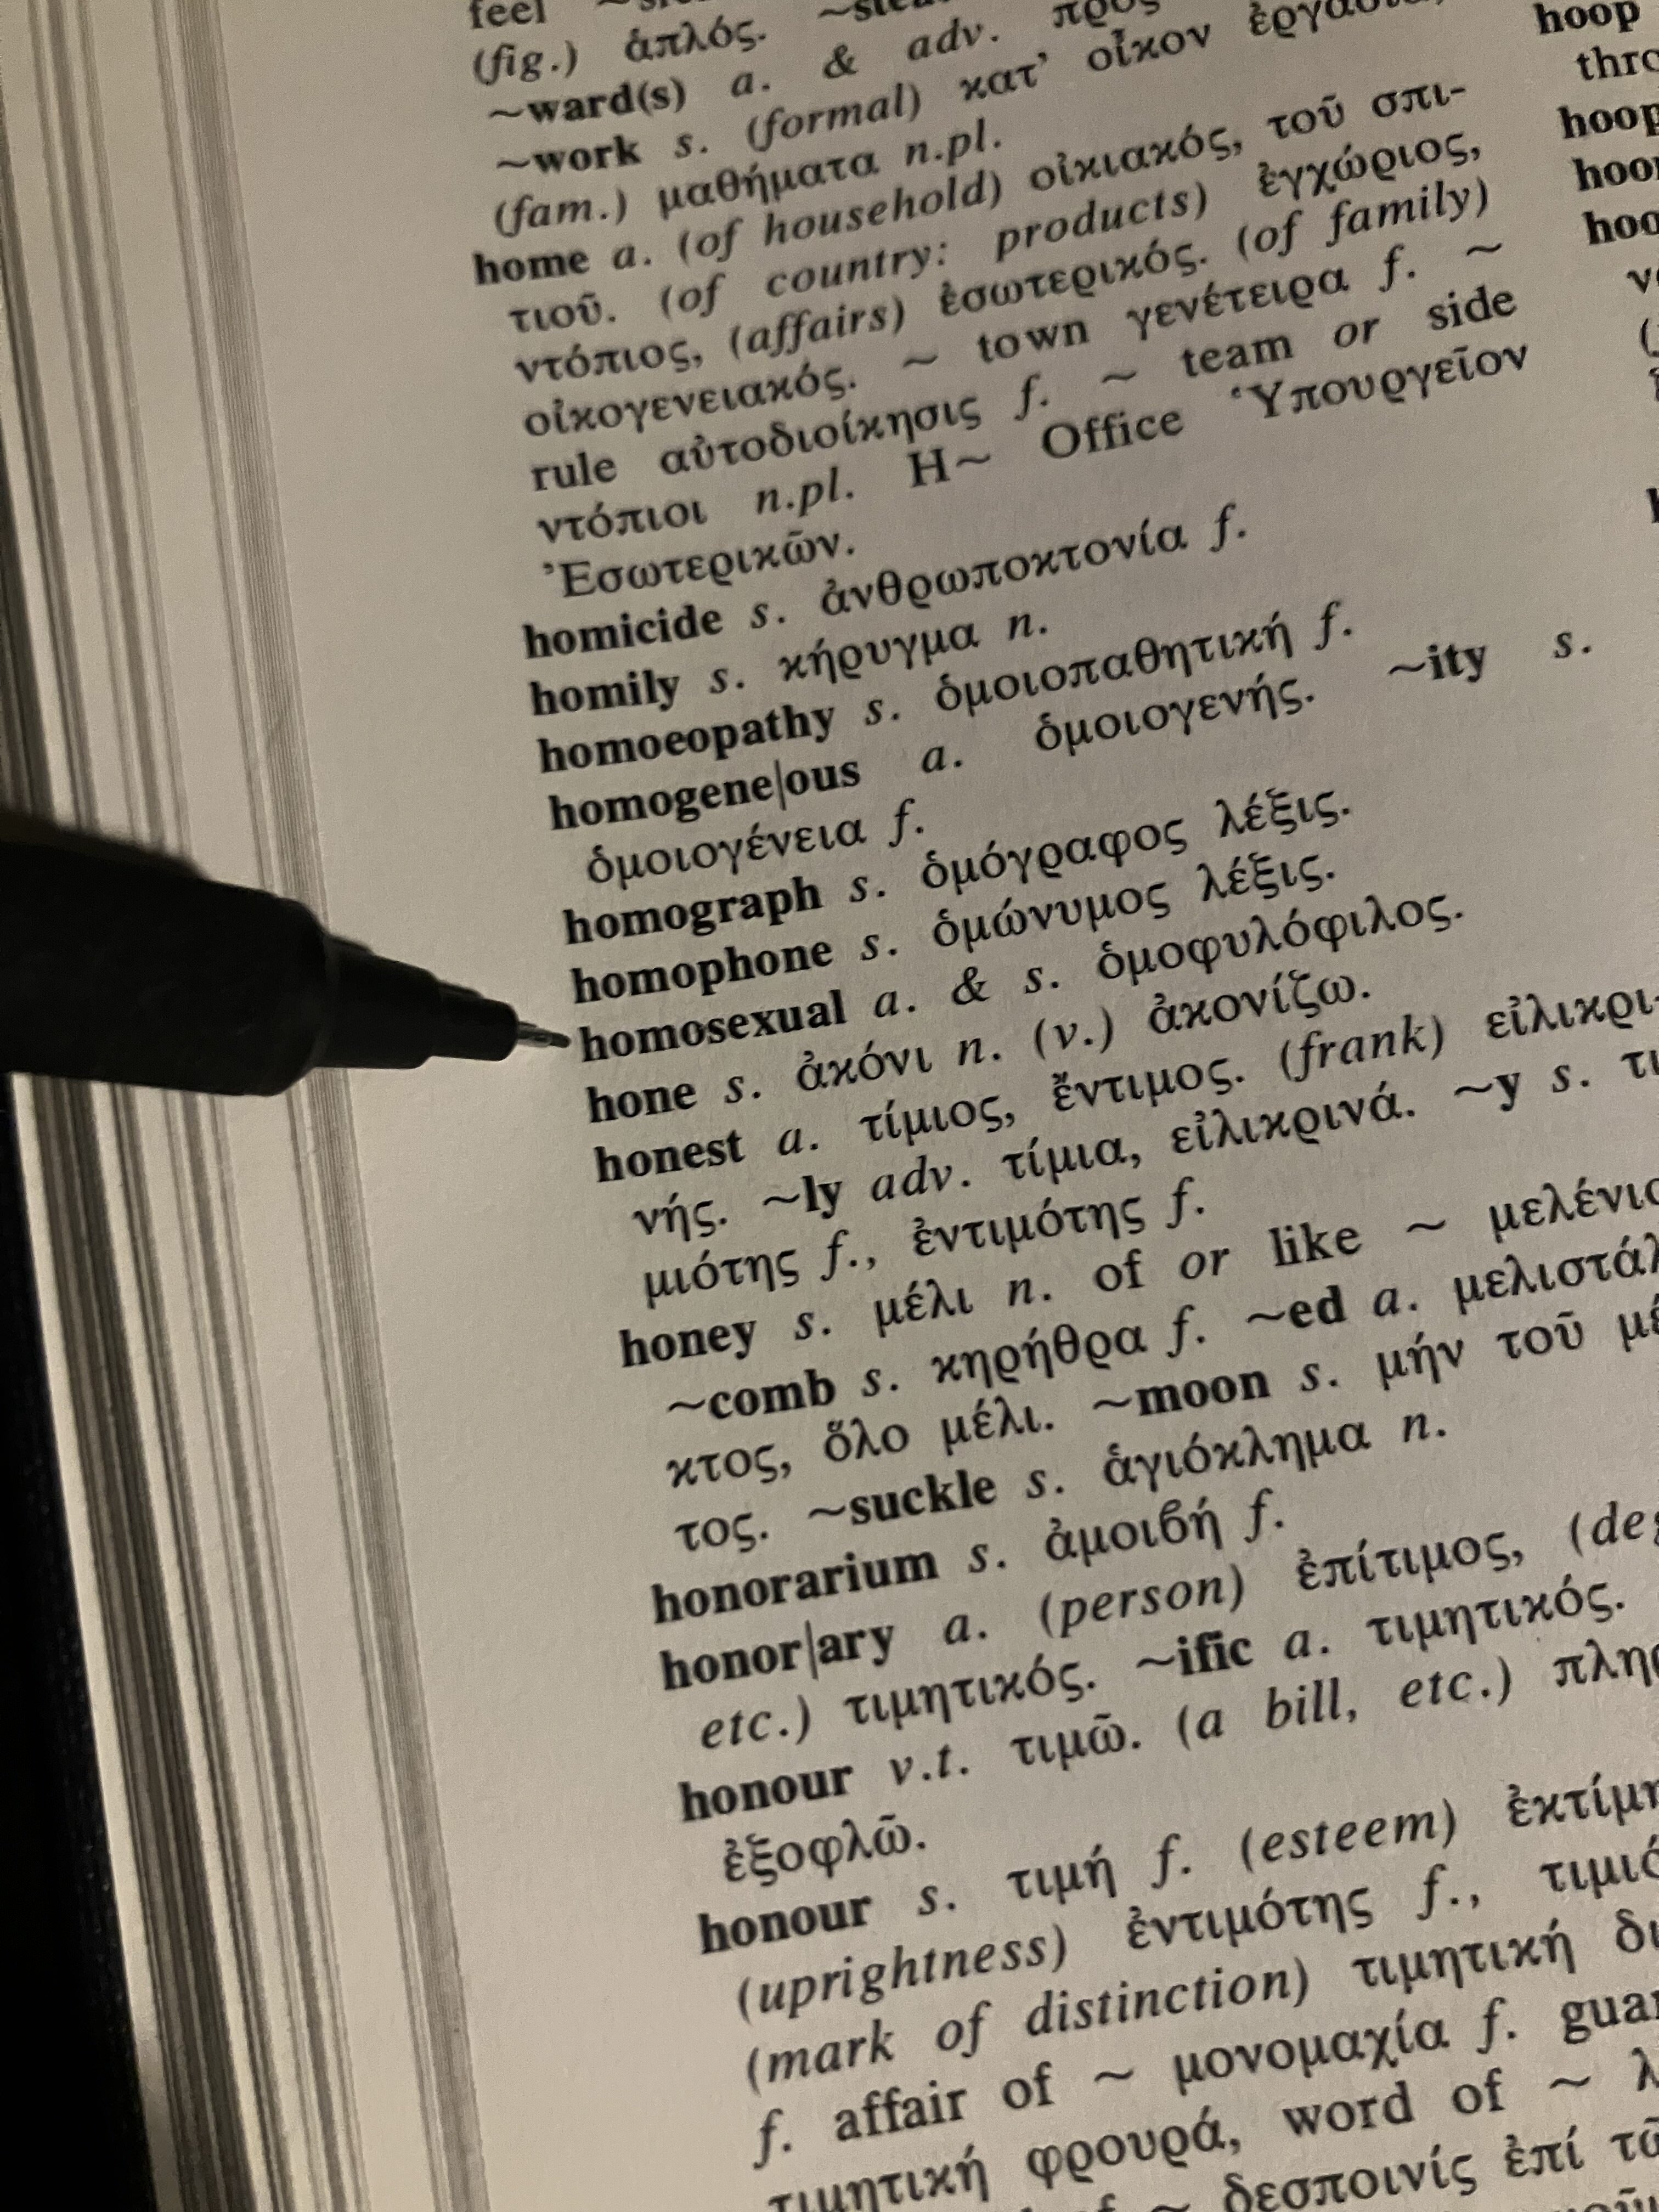 feel
(fig.) ἁπλός.
~ward(s) a. & adv. πρός
~work s. (formal) κατ’ οἶκον
(fam.) μαθήματα n.pl.
home a. (of household) οἰκιακός, τοῦ σπι-
τιοῦ. (of country: products) ἐγχώριος,
ντόπιος, (affairs) ἐσωτερικός. (of family)
οἰκογενειακός. ~ town γενέτειρα f. ~
rule αὐτοδιοίκησις f. ~ team or side
ντόπιοι n.pl. H~ Office Ὑπουργεῖον
Ἐσωτερικῶν.
homicide s. ἀνθρωποκτονία f.
homily s. κήρυγμα n.
homoeopathy s. ὁμοιοπαθητική f.
homogene|ous a. ὁμοιογενής. ~ity s.
ὁμοιογένεια f.
homograph s. ὁμόγραφος λέξις.
homophone s. ὁμώνυμος λέξις.
homosexual a. & s. ὁμοφυλόφιλος.
hone s. ἀκόνι n. (v.) ἀκονίζω.
honest a. τίμιος, ἔντιμος. (frank) εἰλικρι-
νής. ~ly adv. τίμια, εἰλικρινά. ~y s. τι
μιότης f., ἐντιμότης f.
honey s. μέλι n. of or like ~ μελένιο
~comb s. κηρήθρα f. ~ed a. μελιστάλ
κτος, ὅλο μέλι. ~moon s. μήν τοῦ μέ
τος. ~suckle s. ἁγιόκλημα n.
honorarium s. ἀμοιβή f.
honor|ary a. (person) ἐπίτιμος, (deg
etc.) τιμητικός. ~ific a. τιμητικός.
honour v.t. τιμῶ. (a bill, etc.) πληρ
ἐξοφλῶ.
honour s. τιμή f. (esteem) ἐκτίμη
(uprightness) ἐντιμότης f., τιμιό
(mark of distinction) τιμητική δι
f. affair of ~ μονομαχία f. guar
τιμητική φρουρά, word of ~ λ
~ δεσποινίς ἐπί τῶ
hoop
thro
hoop
hoo
hoo